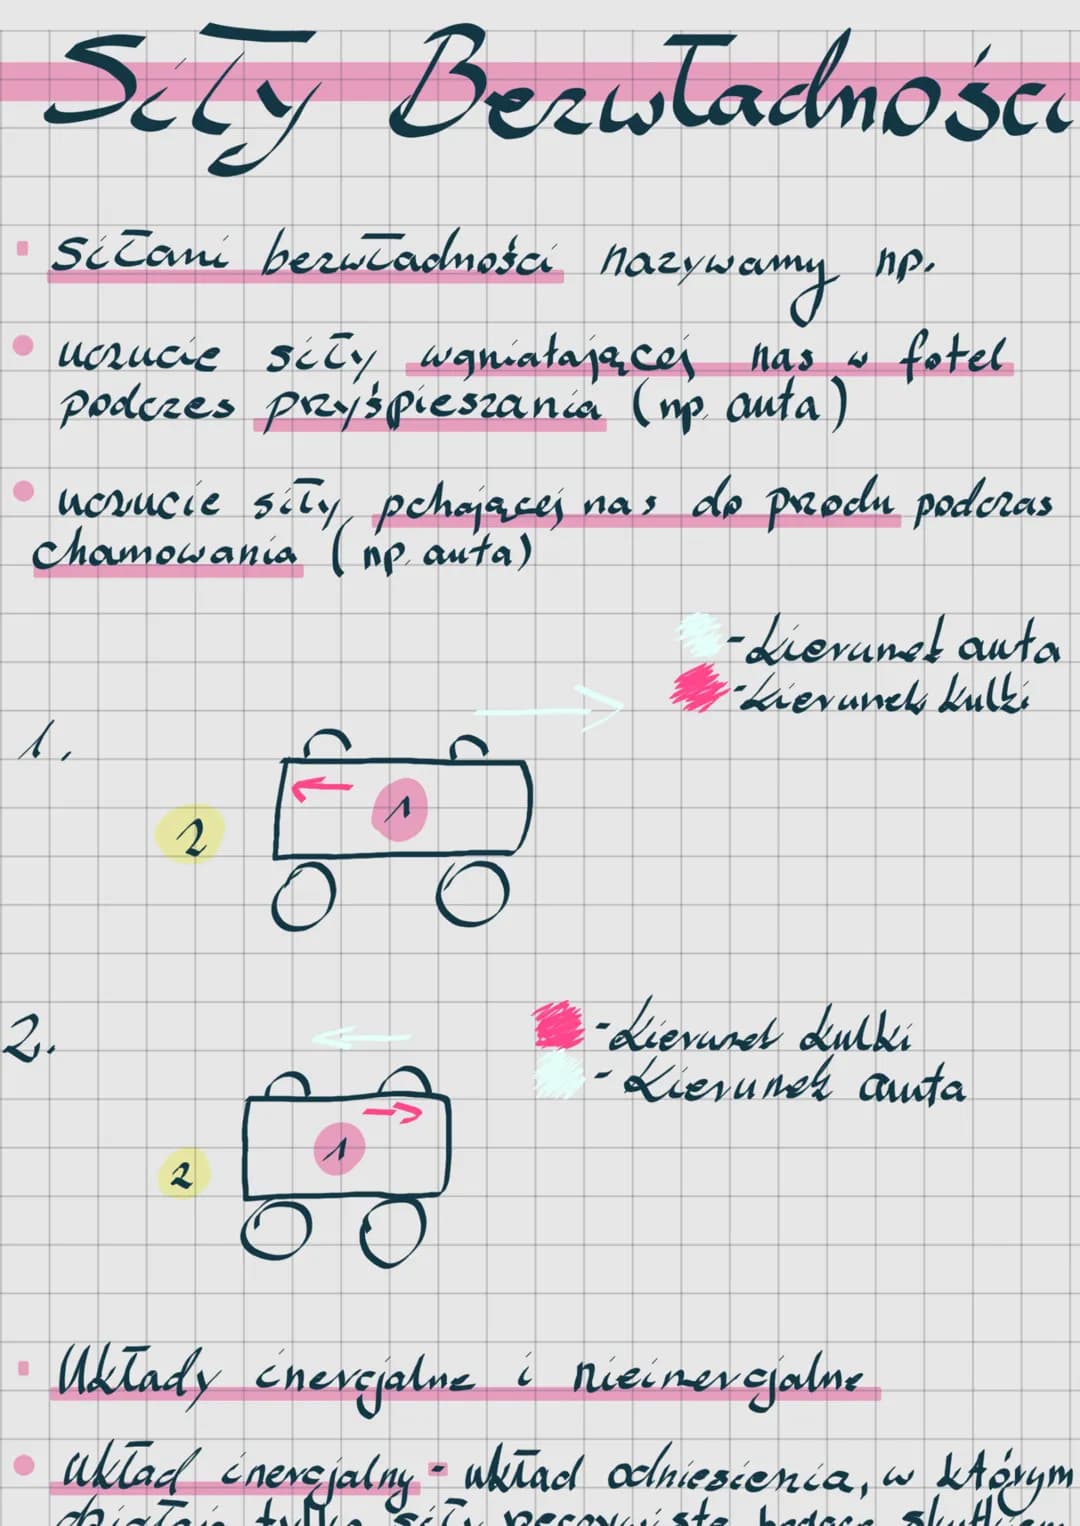 Siły Bezwładności
Siłami bezwładności nazywamy np.
uczucie siły wgniatającej nas w fotel
podczes przyśpieszania (np. auta)
uczucie siły pchającej nas do przodu podczas
chamowania (np. auta)
- kierunek auta
- kierunek kulki
1.
1
2
2.
- kierunek kulki
- kierunek auta
1
2
Układy inercjalne i nieinercjalne
Układ inercjalny - układ odniesienia, w którym
działają tylko siły rzeczywiste będące skutkiem